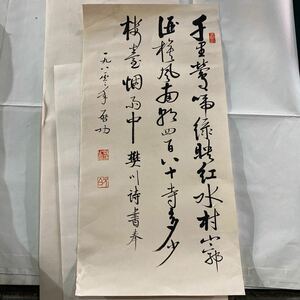 千里莺啼绿映红水村山郭
酒旗风南朝四百八十寺多少
楼台烟雨中 樊川诗书奉
一九八〇年 启功